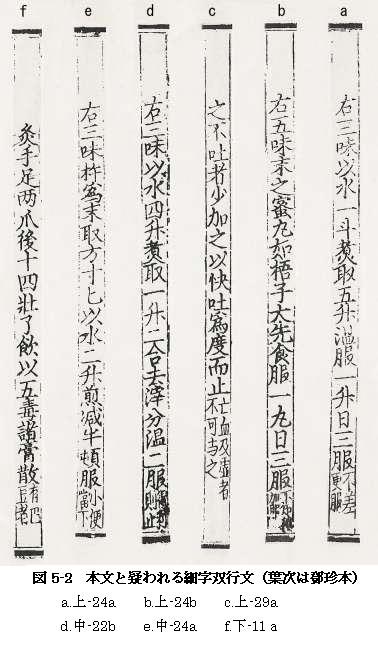 f e d c b a
右三味以水一斗煮取五升温服一升日三服不差更服
右五味末之蜜丸如梧子大先食服一丸日三服
之不吐者少加之以快吐爲度而止亡血及虚者不可与之
右三味以水四升煮取一升二合去滓分温二服
右三味杵爲末取方寸匕以水二升煎减半頓服小便當下
灸手足两爪後十四壯了飲以五毒諸膏散有巴豆者
図5-2 本文と疑われる細字双行文（葉次は鄧珍本）
a.上-24a b.上-24b c.上-29a
d.中-22b e.中-24a f.下-11a